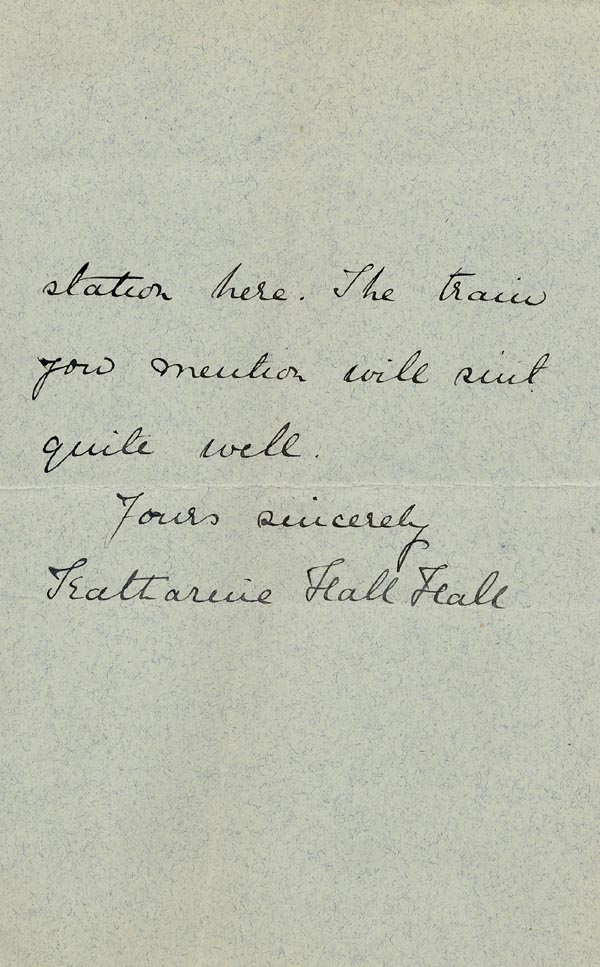 station here. The train
you mention will suit
quite well.
Yours sincerely
Katharine Hall Hall